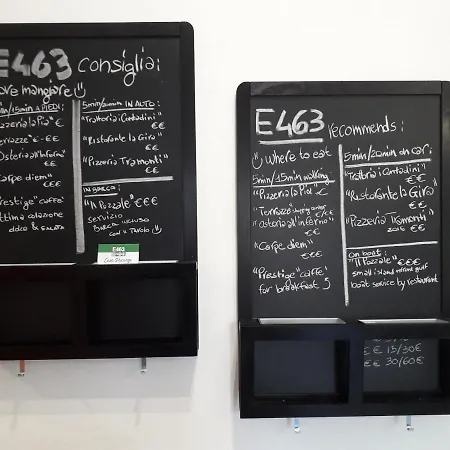 E463 consiglia:
ove mangiare
min/15min A PIEDI
"Pizzeria la Pia" €
"Terrazze" €-€€
"Osteria all'inferno"
€€
"Carpe diem"
€€€
"Prestige" caffè
ottima colazione
dolce & salata
5min/20min IN AUTO:
"Trattoria Contadini"
€€
"Ristorante la Gira"
€€
"Pizzeria Tramonti"
€€
IN BARCA:
"Il Pozzale" €€€
servizio
BARCA
con il TAVOLO
E463
E463 recommends:
Where to eat
5min/15min walking
"Pizzeria la Pia" €
"Terrazze"
€/€€
"osteria all'inferno"
€€
"Carpe diem"
€€€
"Prestige" caffè
for breakfast
5min/20min on car:
"Trattoria i Contadini"
€€
"Ristorante la Gira"
€€
"Pizzeria Tramonti"
€€
on boat:
"Il Pozzale" €€€
small island
boat service by restaurant
€€ 15/30€
€€€ 30/60€